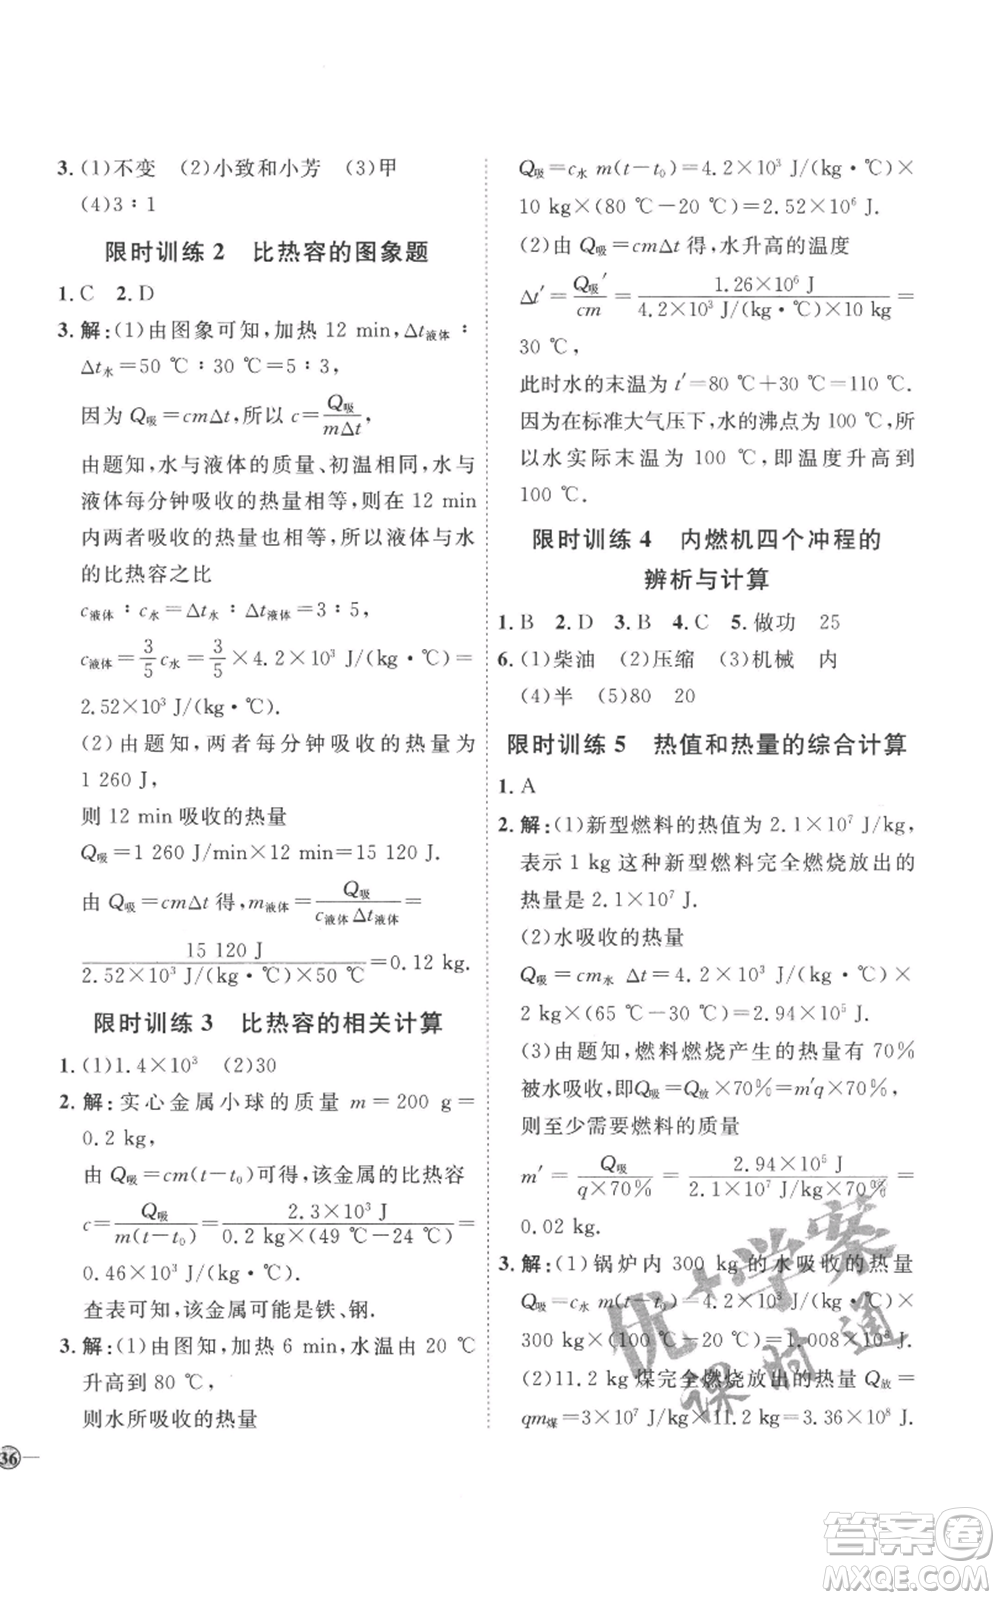 3. (1)不变 (2)小致和小芳 (3)甲
(4)3∶1
限时训练2 比热容的图象题
1. C 2. D
3. 解:(1)由图象可知,加热 12 min,Δt液体∶
Δt水=50 ℃∶30 ℃=5∶3,
因为 Q吸=cmΔt,所以 c=Q吸/(mΔt),
由题知,水与液体的质量、初温相同,水与
液体每分钟吸收的热量相等,则在 12 min
内两者吸收的热量也相等,所以液体与水
的比热容之比
c液体∶c水=Δt水∶Δt液体=3∶5,
c液体=3/5 c水=3/5×4.2×10³ J/(kg·℃)=
2.52×10³ J/(kg·℃).
(2)由题知,两者每分钟吸收的热量为
1 260 J,
则 12 min 吸收的热量
Q吸=1 260 J/min×12 min=15 120 J.
由 Q吸=cmΔt 得,m液体=Q吸/(c液体Δt液体)=
15 120 J/(2.52×10³ J/(kg·℃)×50 ℃)=0.12 kg.
限时训练3 比热容的相关计算
1. (1)1.4×10³ (2)30
2. 解:实心金属小球的质量 m=200 g=
0.2 kg,
由 Q吸=cm(t-t₀)可得,该金属的比热容
c=Q吸/(m(t-t₀))=2.3×10³ J/(0.2 kg×(49 ℃-24 ℃))=
0.46×10³ J/(kg·℃).
查表可知,该金属可能是铁、钢.
3. 解:(1)由图知,加热 6 min,水温由 20 ℃
升高到 80 ℃,
则水所吸收的热量
36
Q吸=c水 m(t-t₀)=4.2×10³ J/(kg·℃)×
10 kg×(80 ℃-20 ℃)=2.52×10⁶ J.
(2)由 Q吸=cmΔt 得,水升高的温度
Δt′=Q吸′/(cm)=1.26×10⁶ J/(4.2×10³ J/(kg·℃)×10 kg)=
30 ℃,
此时水的末温为 t′=80 ℃+30 ℃=110 ℃.
因为在标准大气压下,水的沸点为 100 ℃,所
以水实际末温为 100 ℃,即温度升高到
100 ℃.
限时训练4 内燃机四个冲程的
辨析与计算
1. B 2. D 3. B 4. C 5. 做功 25
6. (1)柴油 (2)压缩 (3)机械 内
(4)半 (5)80 20
限时训练5 热值和热量的综合计算
1. A
2. 解:(1)新型燃料的热值为 2.1×10⁷ J/kg,
表示 1 kg 这种新型燃料完全燃烧放出的
热量是 2.1×10⁷ J.
(2)水吸收的热量
Q吸=cm水 Δt=4.2×10³ J/(kg·℃)×
2 kg×(65 ℃-30 ℃)=2.94×10⁵ J.
(3)由题知,燃料燃烧产生的热量有 70%
被水吸收,即Q吸=Q放×70%=m′q×70%,
则至少需要燃料的质量
m′=Q吸/(q×70%)=2.94×10⁵ J/(2.1×10⁷ J/kg×70%)=
0.02 kg.
3. 解:(1)锅炉内 300 kg 的水吸收的热量
Q吸=c水 m(t-t₀)=4.2×10³ J/(kg·℃)×
300 kg×(100 ℃-20 ℃)=1.008×10⁸ J.
(2)11.2 kg 煤完全燃烧放出的热量 Q放=
qm煤=3×10⁷ J/kg×11.2 kg=3.36×10⁸ J.
优+学案
课时通
答案圈
MXQE.COM